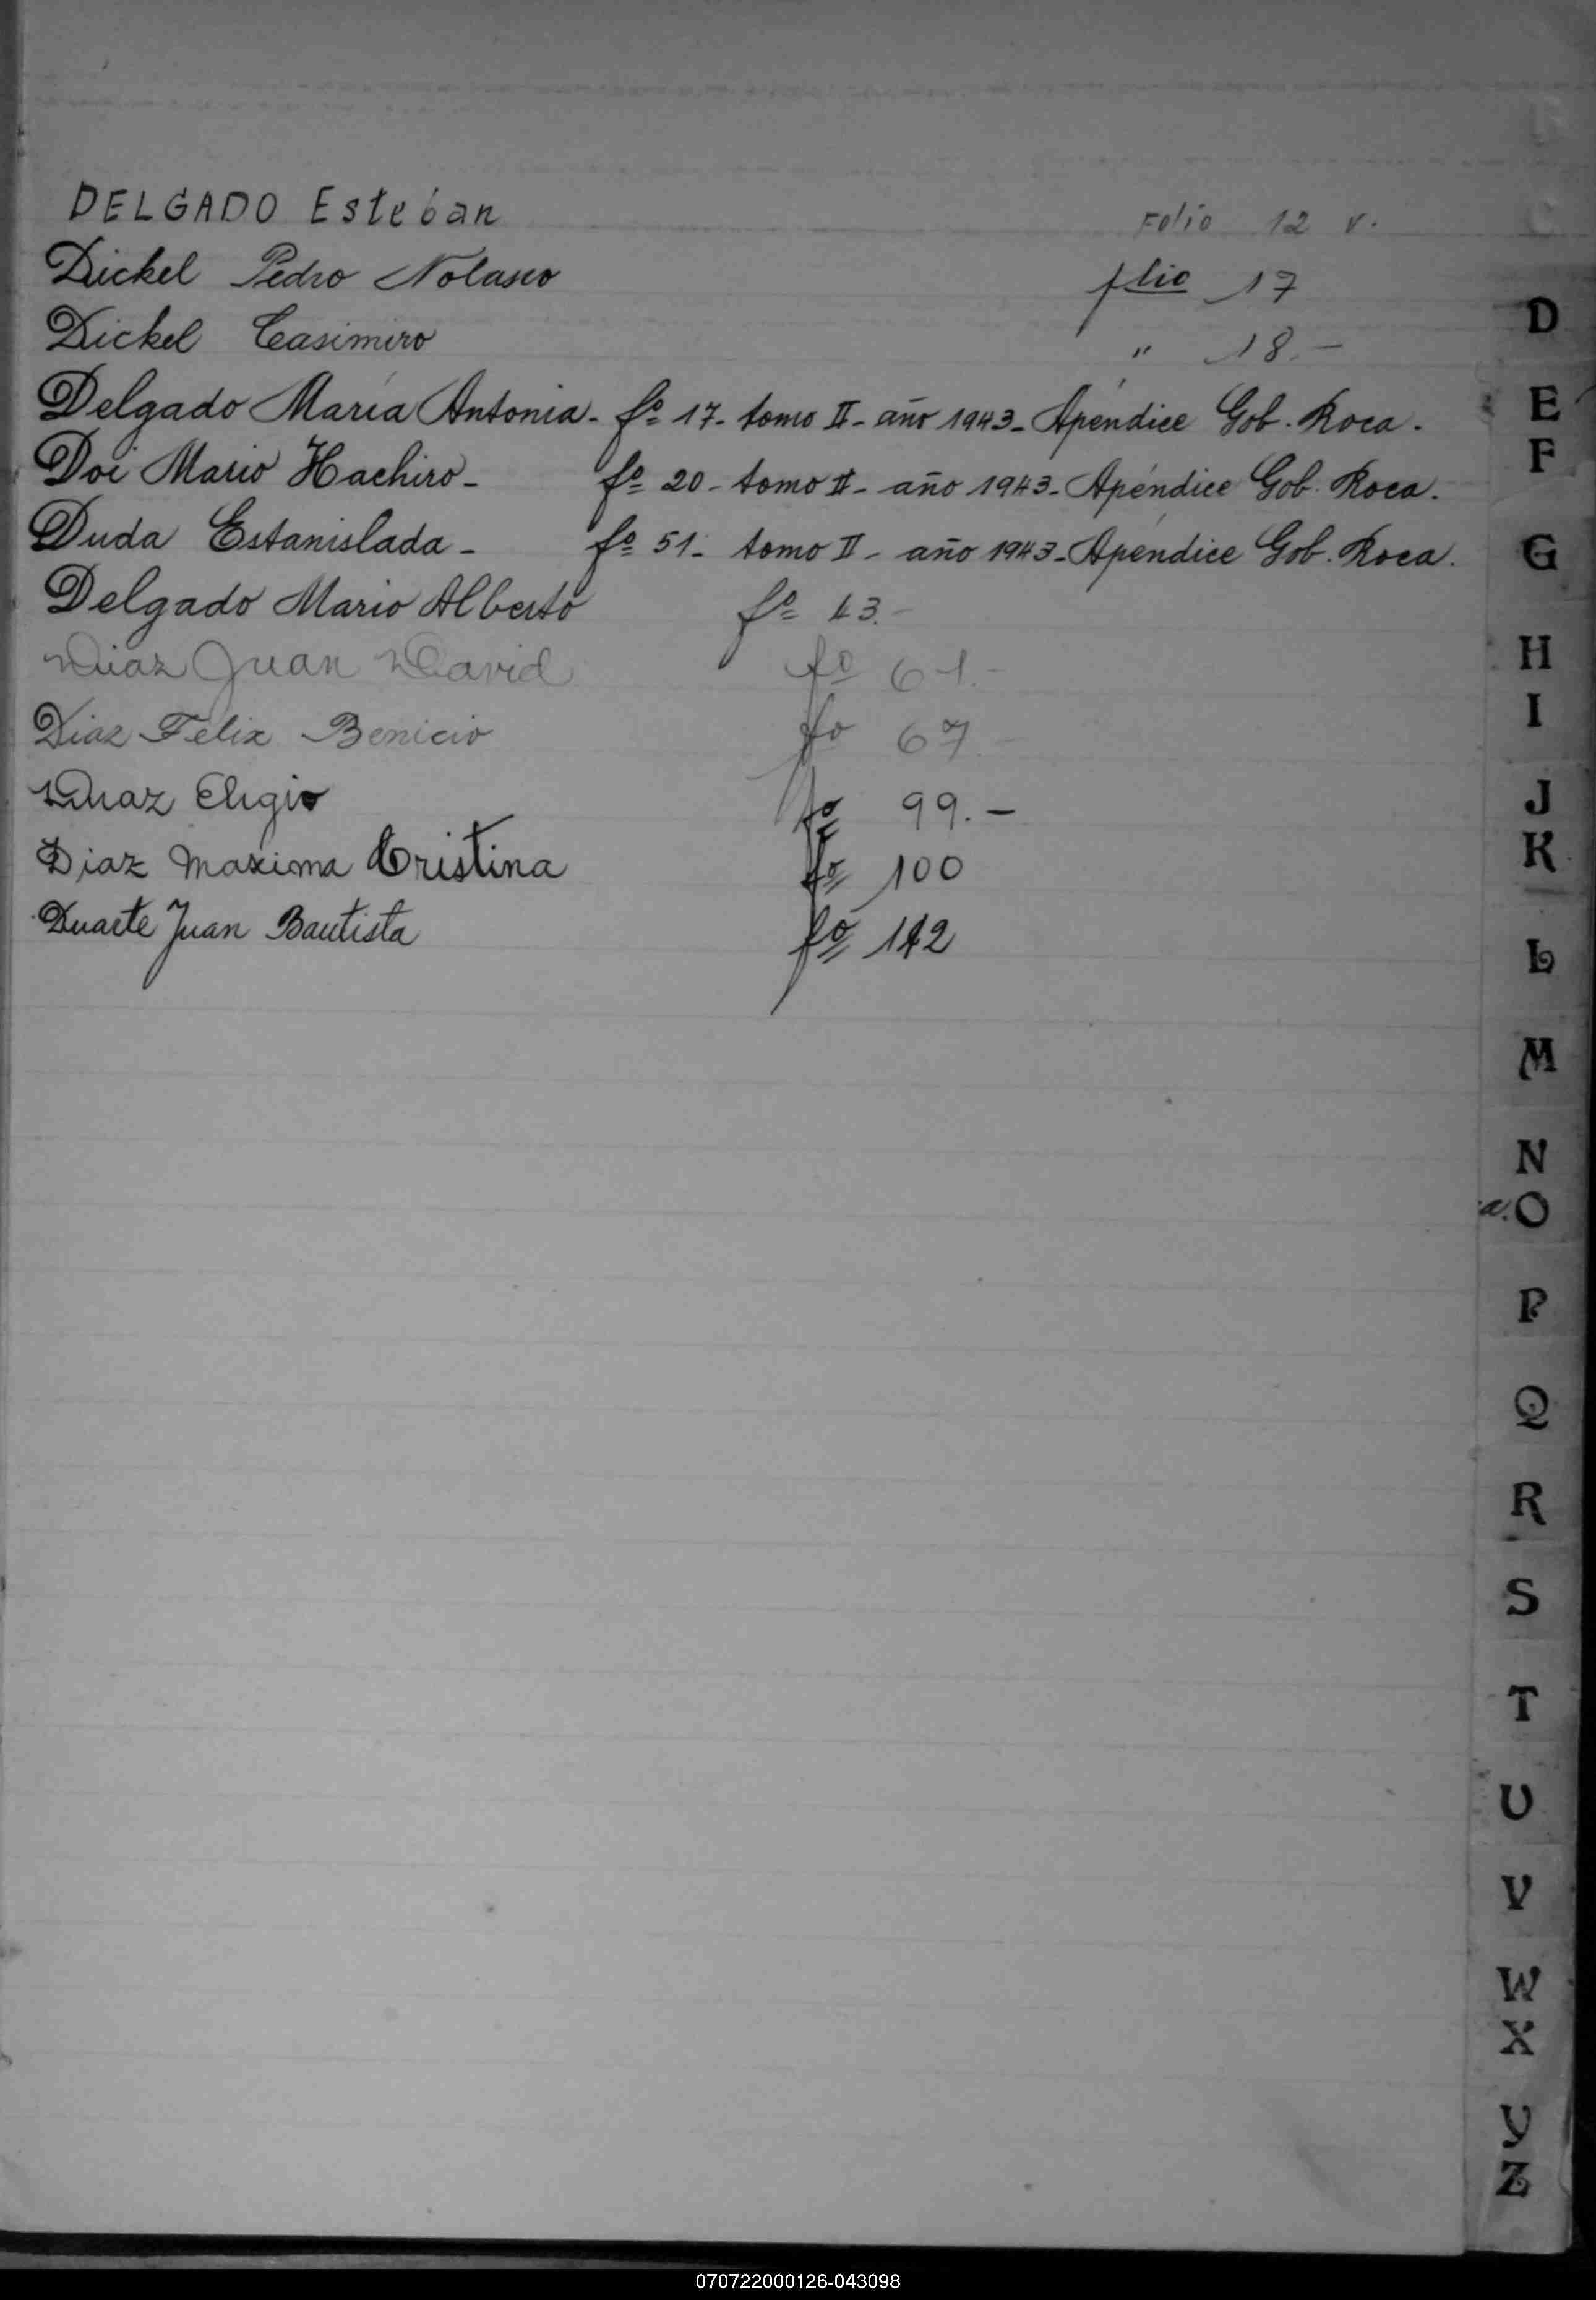 DELGADO Esteban Folio 12 v.
Dickel Pedro Nolasco folio 17
Dickel Casimiro " 18.-
Delgado María Antonia - fº 17- tomo II - año 1943 - Apéndice Gob. Roca.
Doi Mario Hachiro - fº 20 - tomo II - año 1943 - Apéndice Gob. Roca.
Duda Estanislada - fº 51 - tomo II - año 1943 - Apéndice Gob. Roca.
Delgado Mario Alberto fº 43.-
Diaz Juan David fº 61.-
Diaz Felix Benicio fo 67.-
Diaz Eligio fº 99.-
Diaz Maxima Cristina fº 100
Duarte Juan Bautista fº
D
E
F
G
H
I
J
K
L
M
N
O
P
Q
R
S
T
U
V
W
X
Y
Z
070722000126-043098